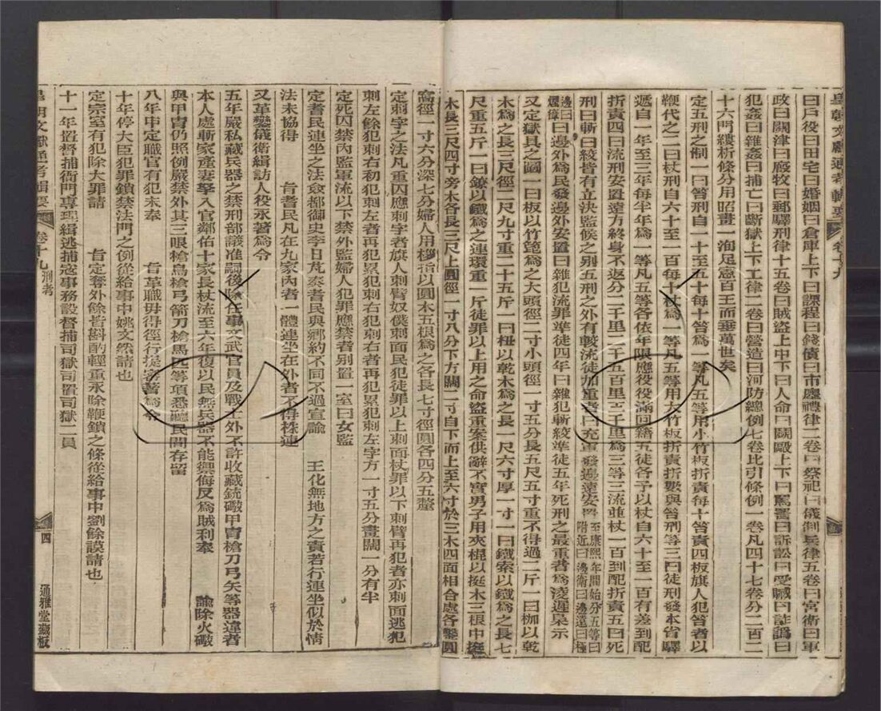 皇朝文獻通考輯要 卷十九
曰戶役曰田宅曰婚姻曰倉庫上下曰課程曰錢債曰市廛禮律二卷曰祭祀曰儀制兵律五卷曰宮衛曰軍
政曰關津曰廄牧曰郵驛刑律十五卷曰賊盜上中下曰人命曰鬬毆上下曰罵詈曰訴訟曰受贓曰詐偽曰
犯姦曰雜犯曰捕亡曰斷獄上下工律二卷曰營造曰河防總例七卷比引條例一卷凡四十七卷分二百二
十六門縷析條分用昭畫一洵足憲百王而垂萬世矣
定五刑之制一曰笞刑自一十至五十每十笞為一等凡五等用小竹板折責每十笞責四板旗人犯笞者以
鞭代之二曰杖刑自六十至一百每十杖為一等凡五等用大竹板折責折數與笞刑等三曰徒刑發本省驛
遞自一年至三年每半年為一等凡五等各依年限應役役滿回籍五徒各予以杖自六十至一百有差到配
折責四曰流刑安置遠方終身不返分二千里二千五百里三千里為三等三流並杖一百到配折責五曰死
刑曰斬曰絞皆有立決監候之別五刑之外有較流徒加重者曰充軍發邊遠安置至康熙年間始分五等曰附近曰邊衛曰邊遠曰極
邊曰煙瘴曰邊外為民發邊外安置曰雜犯流罪準徒四年曰雜犯斬絞準徒五年死刑之最重者為凌遲梟示
又定獄具之圖一曰板以竹篦為之大頭徑二寸小頭徑一寸五分長五尺五寸重不得過二斤一曰枷以乾
木為之長三尺徑二尺九寸重二十五斤一曰杻以乾木為之長一尺六寸厚一寸一曰鐵索以鐵為之長七
尺重五斤一曰鐐以鐵為之連環重一斤徒罪以上用之命盜重案供辭不實男子用夾棍以挺木三根中挺
木長三尺四寸旁木各長三尺上圓徑一寸八分下方闊二寸自下而上至六寸於三木四面相合處各鑿圓
窩徑一寸六分深七分婦人用拶指以圓木五根為之各長七寸徑圓各四分五釐
定刺字之法凡重囚應刺字者旗人刺臂奴僕刺面民犯徒罪以上刺面杖罪以下刺臂再犯者亦刺面逃犯
刺左餘犯刺右初犯刺左者再犯累犯刺右初犯刺右者再犯累犯刺左字方一寸五分畫闊一分有半
定死囚禁內監軍流以下禁外監婦人犯罪應禁者別置一室曰女監
定耆民連坐之法僉都御史李日芃奏耆民與鄉約不同不過宣諭 王化無地方之責若行連坐似於情
法未協得 旨耆民凡在九家內者一體連坐在外者不得株連
又革鑾儀衛緝訪人役永著為令
五年嚴私藏兵器之禁刑部議准嗣後除任事文武官員及戰士外不許收藏銃礮甲冑槍刀弓矢等器違者
本人處斬家產妻孥入官鄰佑十家長杖流至六年復以民無兵器不能禦侮反為賊利奉 諭除火礮
與甲冑仍照例嚴禁外其三眼槍鳥槍弓箭刀槍馬匹等項悉聽民間存留
八年申定職官有犯未奉 旨革職毋得徑行提審著為令
十年停大臣犯罪鎖禁法門之例從給事中姚文然請也
定宗室有犯除大罪請 旨定奪外餘皆斟酌輕重永除鞭鎖之條從給事中劉餘謨請也
十一年置督捕衙門專理緝逃捕寇事務設督捕司獄司置司獄二員
皇朝文獻通考輯要 卷十九 刑考 四 通雅堂藏板